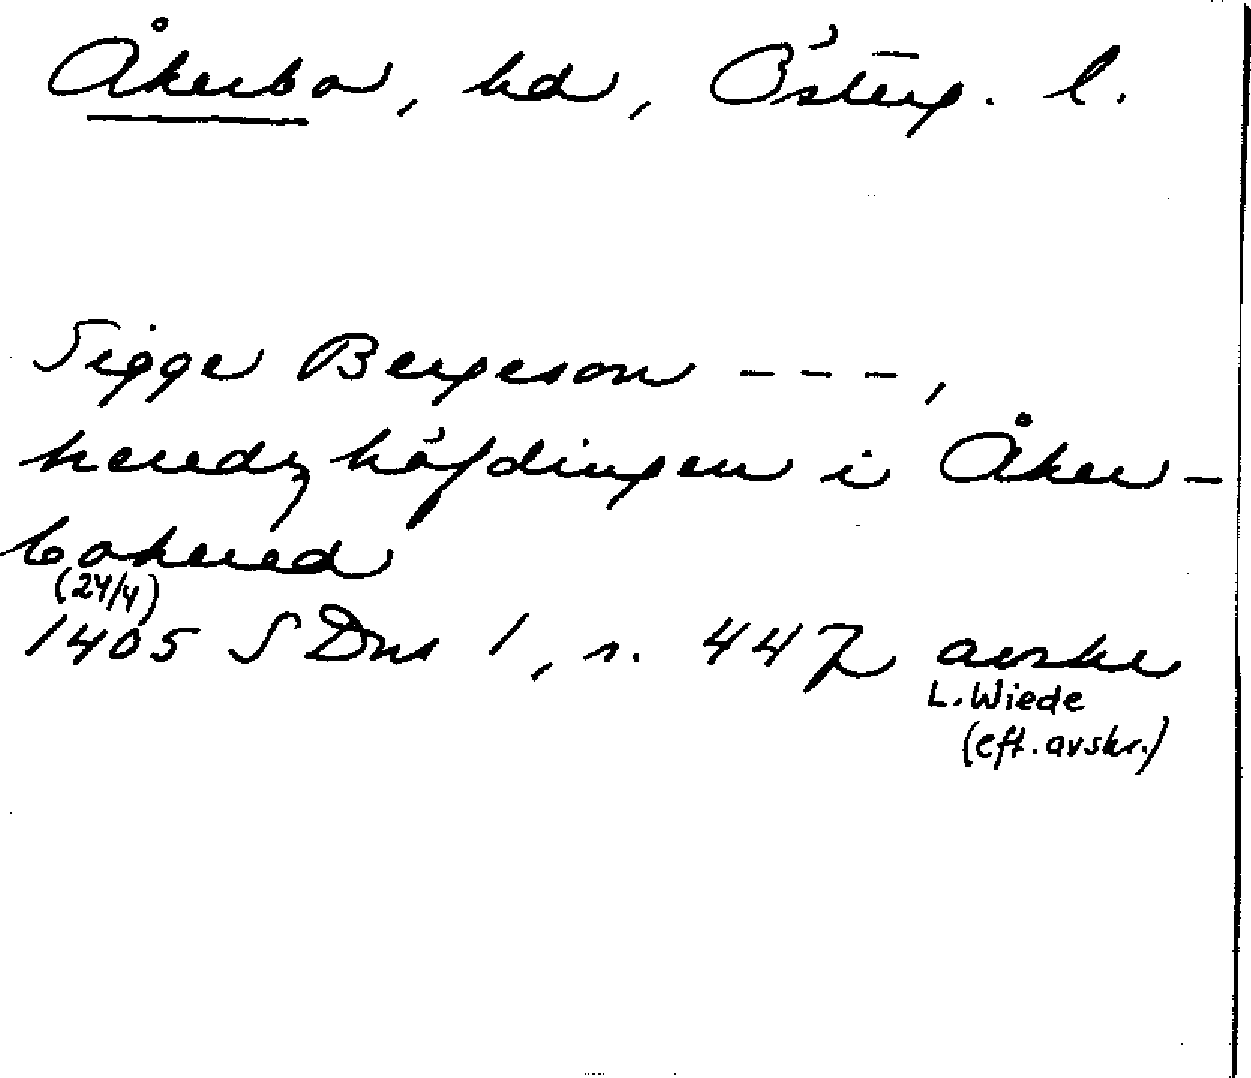 Åkerbo, hd, Österg. l.
Sigge Bergeson - - - ,
heredzhöfdingen i Åker-
bohered
(24/4)
1405 SDns 1, s. 447 avskr
L. Wiede
(eft. avskr.)